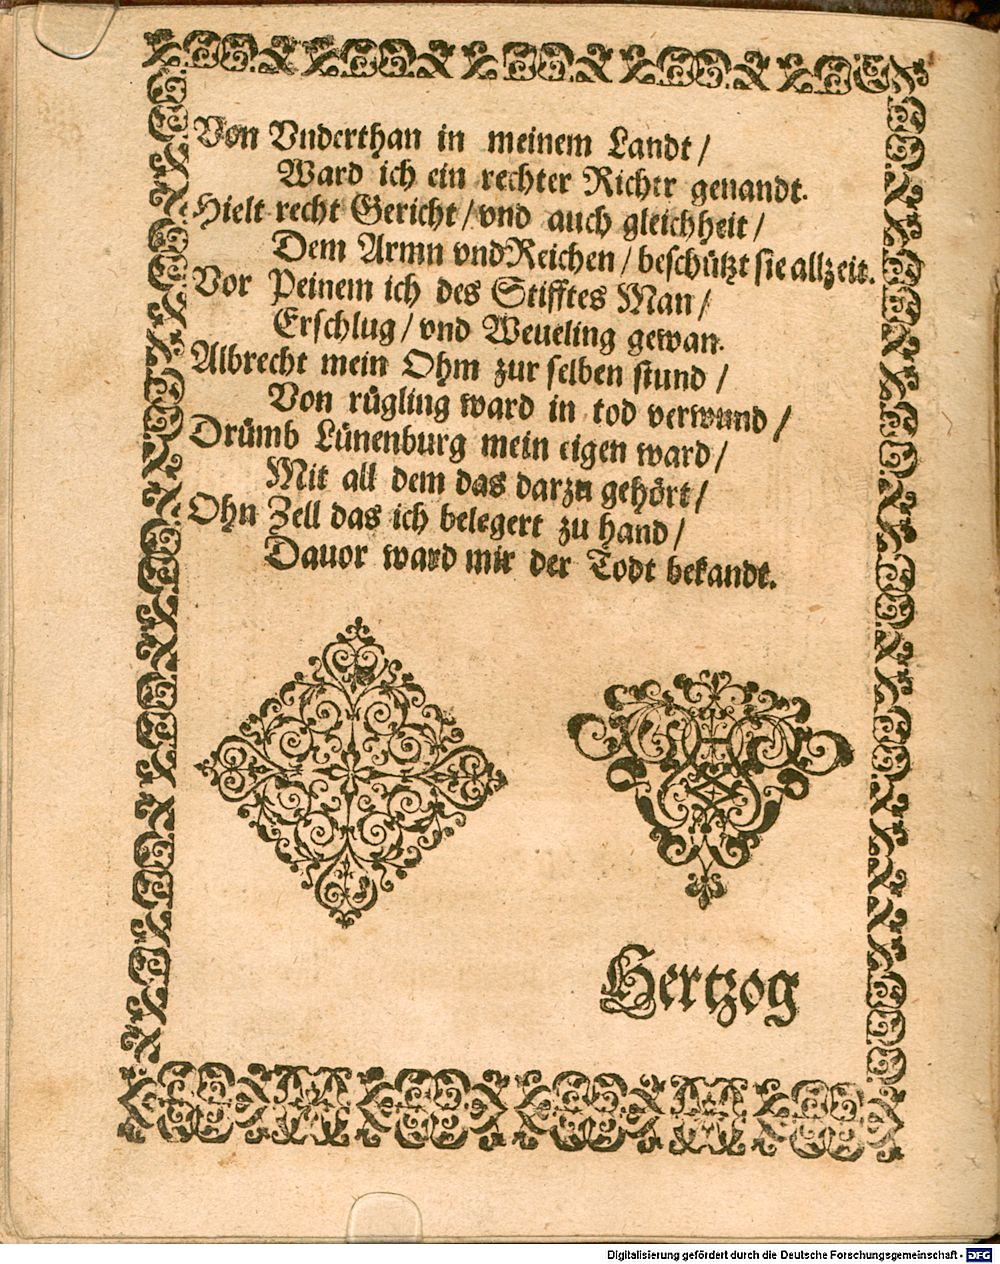 Von Vnderthan in meinem Landt /
Ward ich ein rechter Richtr genandt.
Hielt recht Gericht / vnd auch gleichheit /
Dem Armn vnd Reichen / beschützt sie allzeit.
Vor Peinem ich des Stifftes Man /
Erschlug / vnd Weueling gewan.
Albrecht mein Ohm zur selben stund /
Von rügling ward in tod verwund /
Drümb Lünenburg mein eigen ward /
Mit all dem das darzu gehört /
Ohn Zell das ich belegert zu hand /
Dauor ward mir der Todt bekandt.
Hertzog
Digitalisierung gefördert durch die Deutsche Forschungsgemeinschaft - DFG